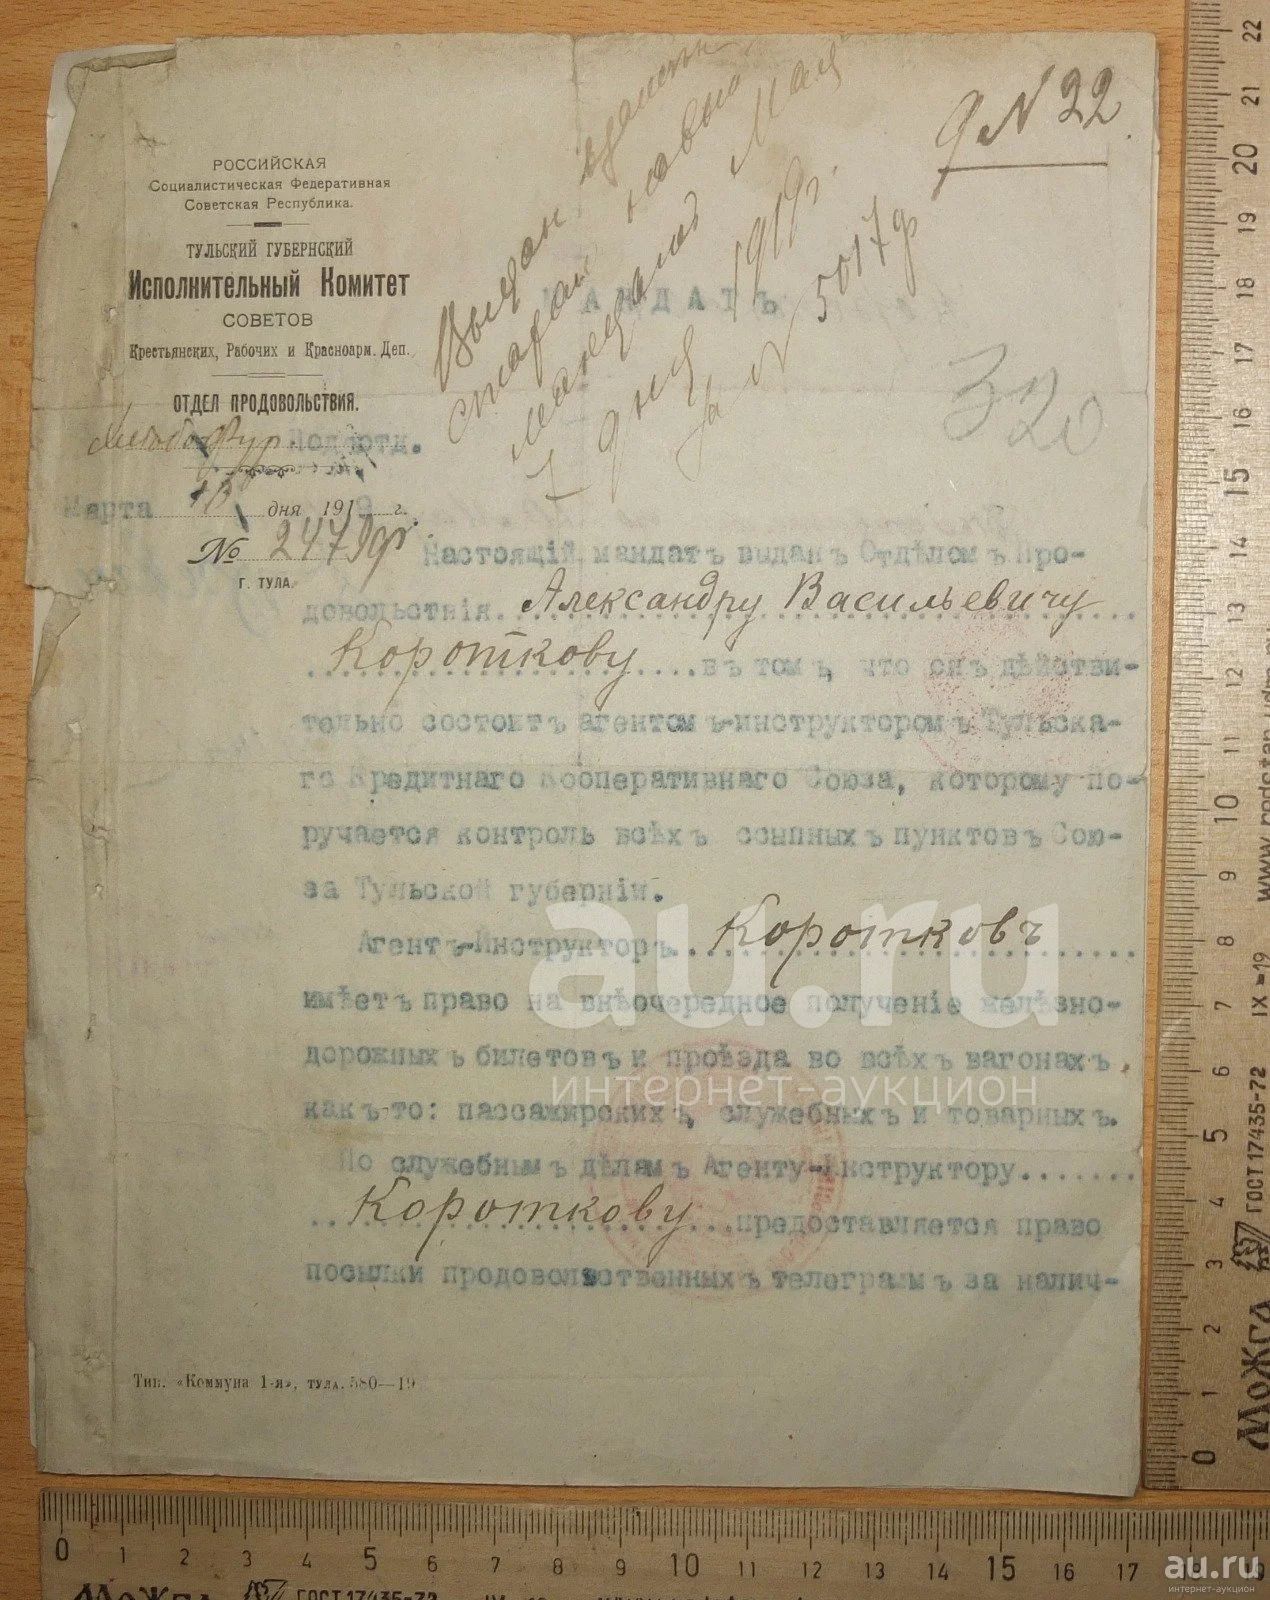 № 22
РОССИЙСКАЯ
Социалистическая Федеративная
Советская Республика.
ТУЛЬСКИЙ ГУБЕРНСКИЙ
Исполнительный Комитет
СОВЕТОВ
Крестьянских, Рабочих и Красноарм. Деп.
ОТДЕЛ ПРОДОВОЛЬСТВИЯ.
Подотд.
Марта 10 дня 1919 г.
№ 2479
г. ТУЛА.
Выдан взамен
старого
мандата
7 дня Мая
1919 г.
за № 5017
МАНДАТЪ
320
Настоящій мандатъ выданъ Отдѣломъ Про-
довольствія. Александру Васильевичу
Короткову въ томъ, что онъ дѣйстви-
тельно состоитъ агентомъ-инструкторомъ Тульска-
го Кредитнаго Кооперативнаго Союза, которому по-
ручается контроль всѣхъ ссыпныхъ пунктовъ Сою-
за Тульской губерніи.
Агентъ-Инструкторъ Коротковъ
имѣетъ право на внѣочередное полученіе желѣзно-
дорожныхъ билетовъ и проѣзда во всѣхъ вагонахъ,
какъ то: пассажирскихъ, служебныхъ и товарныхъ.
По служебнымъ дѣламъ Агенту-Инструктору
Короткову предоставляется право
посылки продовольственныхъ телеграммъ за налич-
Тип. «Коммуна 1-я», тула. 580—19
au.ru
интернет-аукцион
0 1 2 3 4 5 6 7 8 9 10 11 12 13 14 15 16 17
МоЖГА ГОСТ 17435-72
0 1 2 3 4 5 6 7 8 9 10 11 12 13 14 15 16 17 18 19 20 21 22
МоЖГА ГОСТ 17435-72 IX-19
au.ru
интернет-аукцион